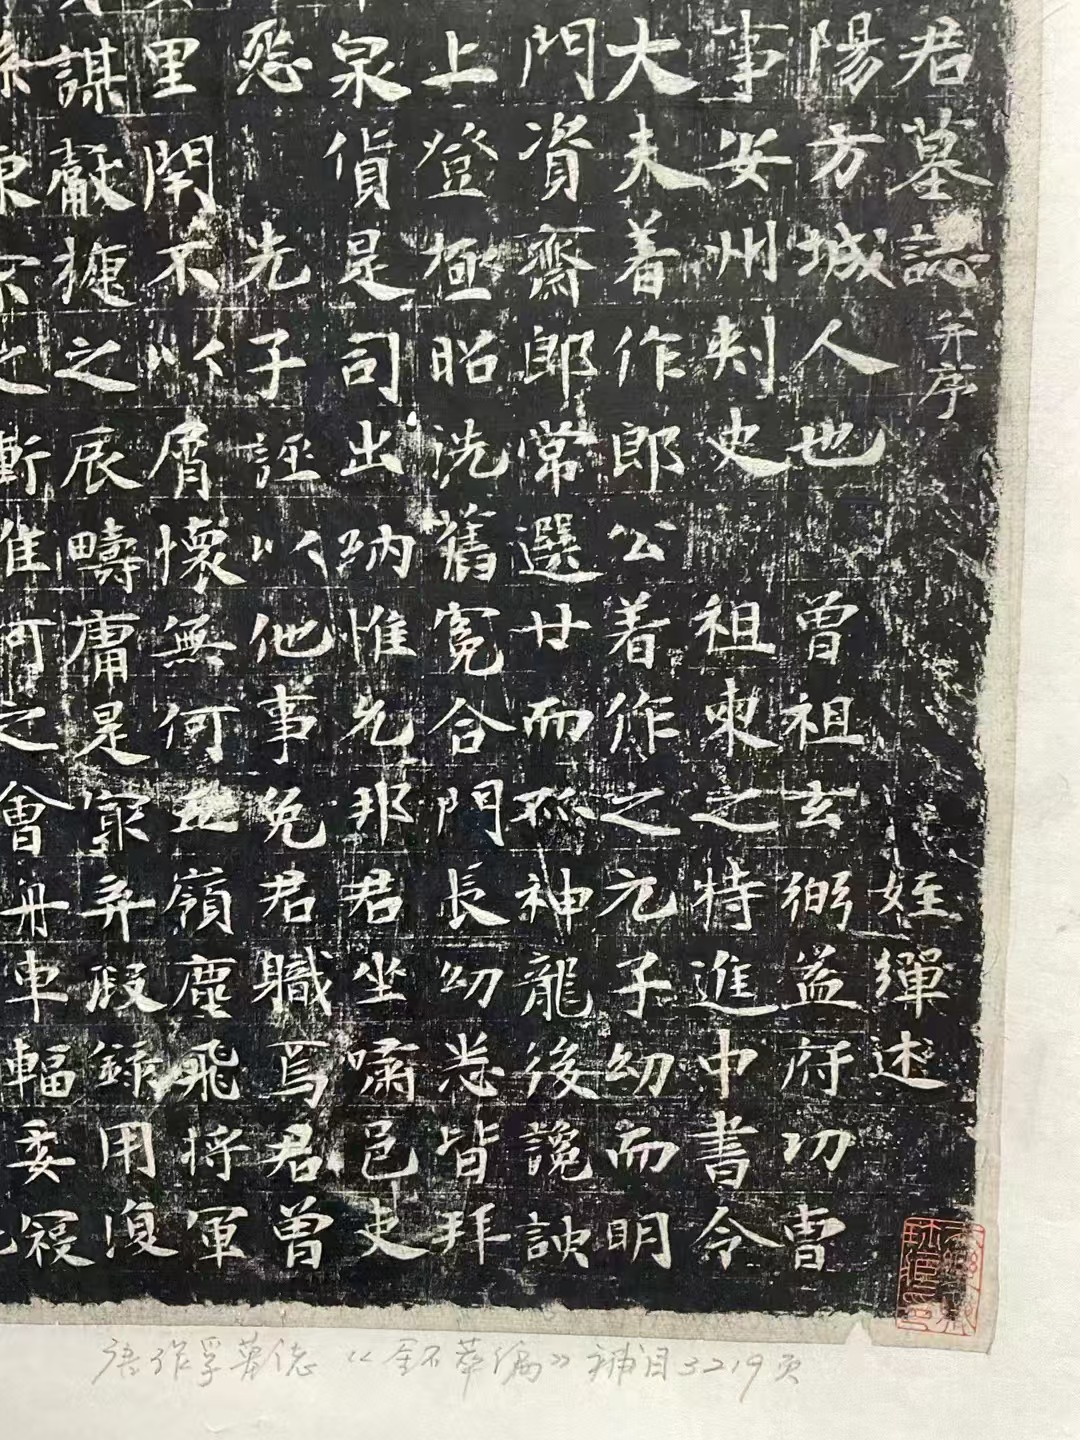 君墓誌并序 姪繟述
陽方城人也 曾祖玄弼益府功曹
事安州刾史 祖柬之特進中書令
大夫著作郎公著作之元子幼而明
門資齋郎常選廿而孤神龍後讒諛
上登極昭洗舊冤合門長幼悉皆拜
泉貨是司出納惟允邦君坐嘯邑吏
惩 先子誣以他事免君職焉君曽
里閈不以屑懷無何五嶺塵飛將軍
謀獻捷之展疇庸是㝡弃瑕錄用復
東 之 惟何之會舟車輻委
《金石萃編》補目3219页